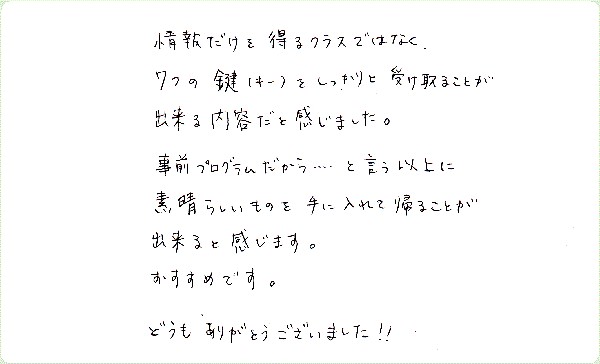 情報だけを得るクラスではなく、
7つの鍵(キー)をしっかりと受け取ることが
出来る内容だと感じました。
事前プログラムだから‥‥と言う以上に
素晴らしいものを手に入れて帰ることが
出来ると感じます。
おすすめです。
どうもありがとうございました!!